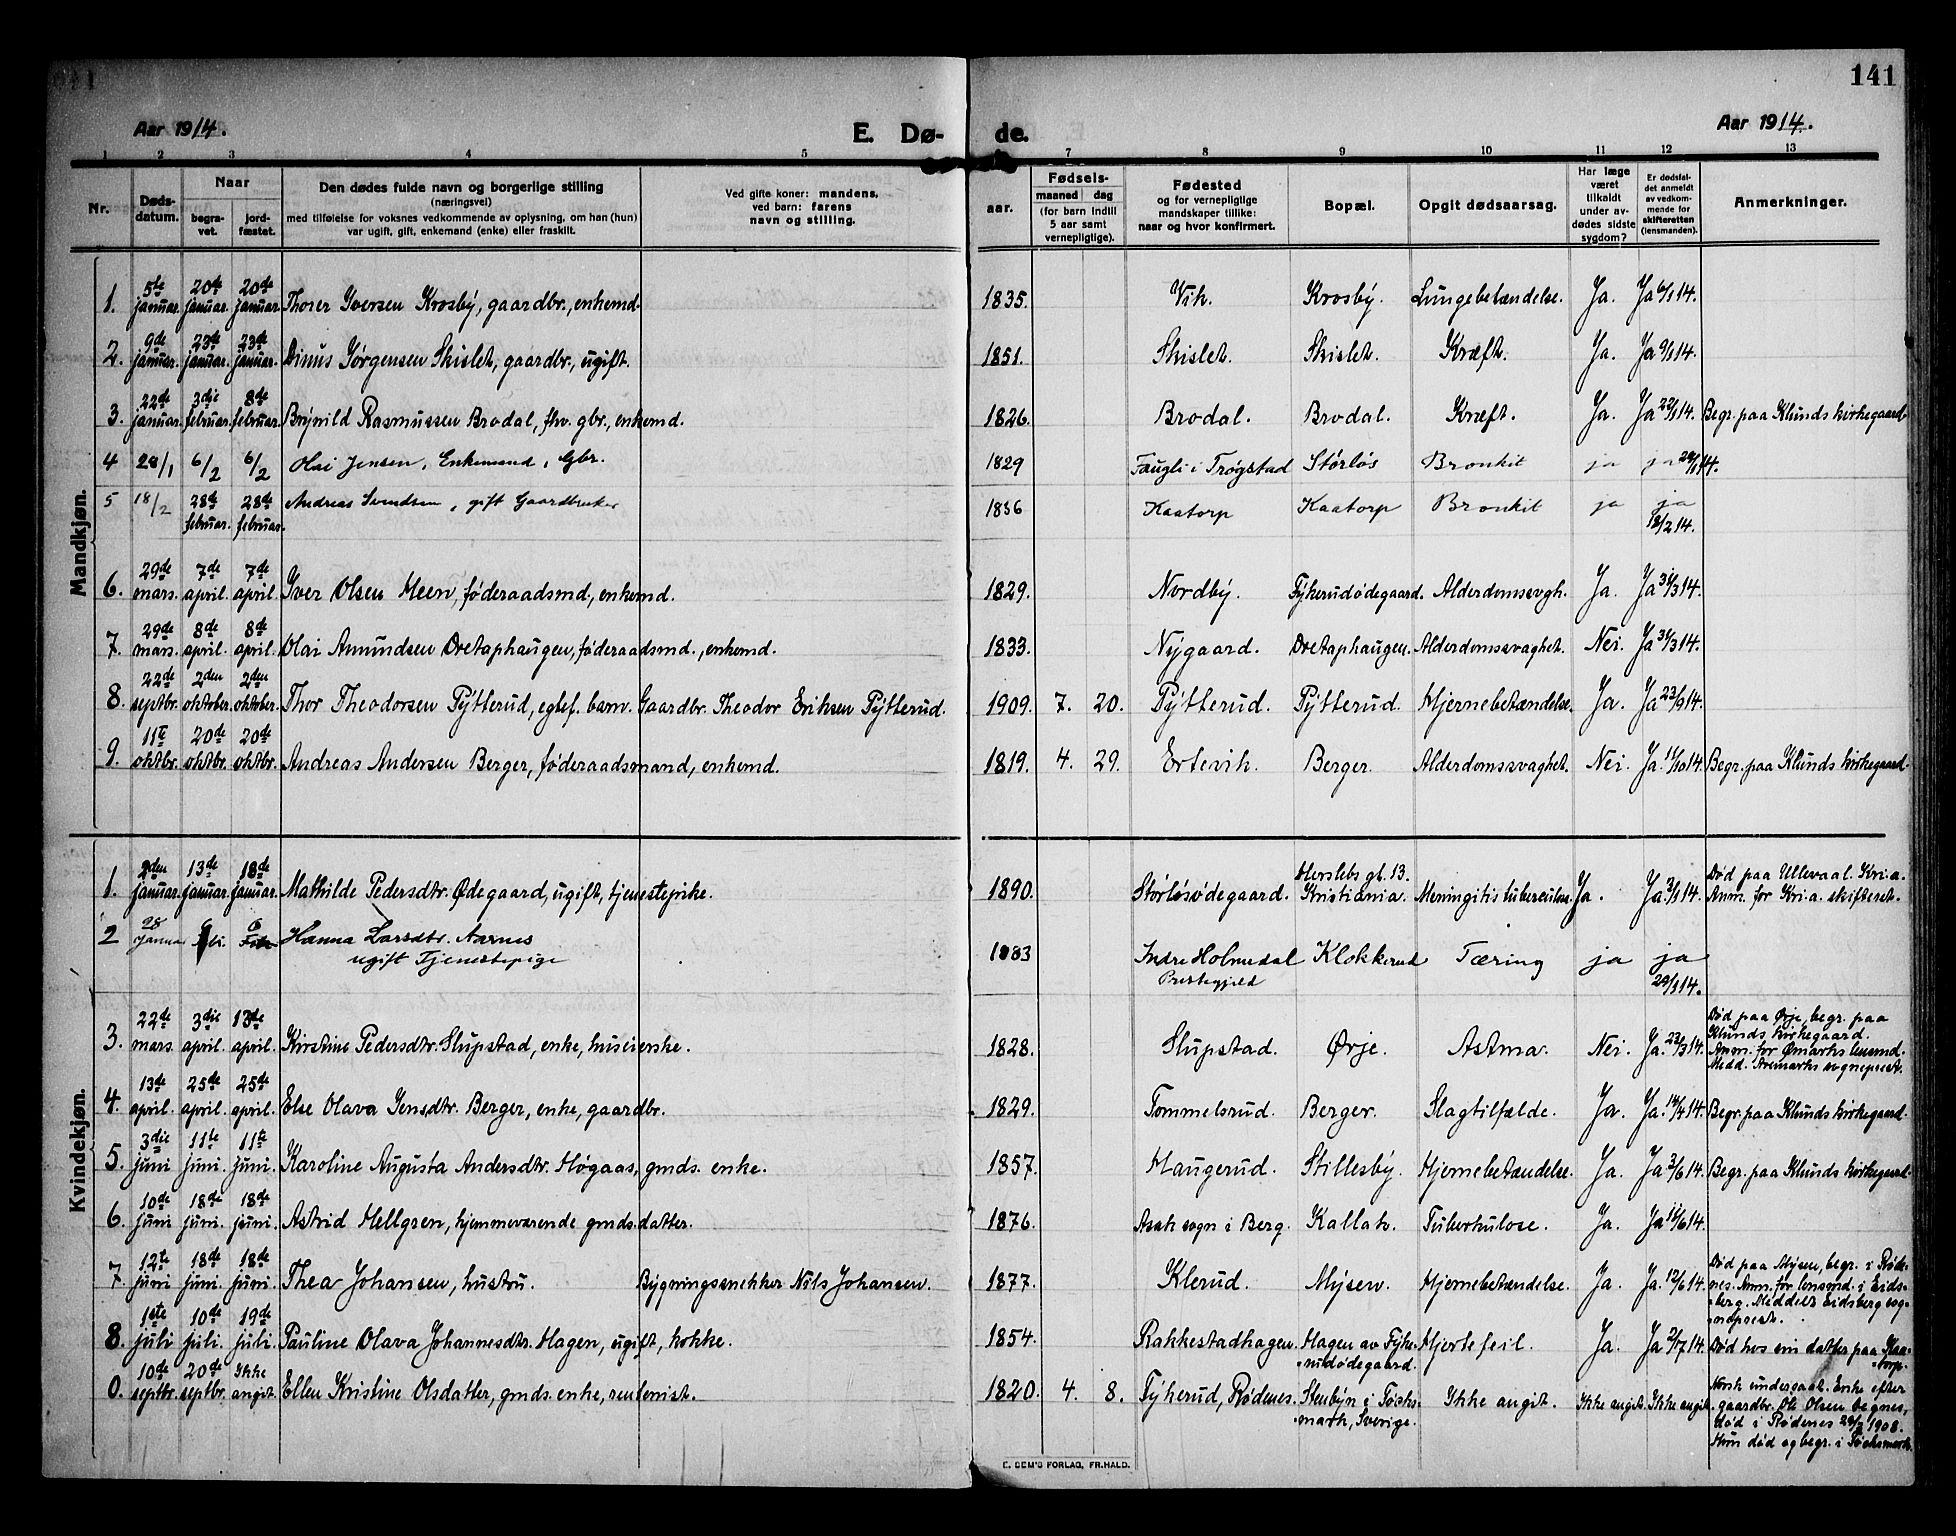 141
Aar 1914. E. Dø- de. Aar 1914.
1 2 3 4 5 7 8 9 10 11 12 13
Nr.
Døds-
datum.
Naar
begra-
vet.
jord-
fæstet.
Den dødes fulde navn og borgerlige stilling
(næringsvei)
med tilføielse for voksnes vedkommende av oplysning, om han (hun)
var ugift, gift, enkemand (enke) eller fraskilt.
Ved gifte koner: mandens,
ved barn: farens
navn og stilling.
Fødsels-
aar.
maaned dag
(for barn indtil
5 aar samt
vernepligtige).
Fødested
og for vernepligtige
mandskaper tillike:
naar og hvor konfirmert.
Bopæl.
Opgit dødsaarsag.
Har læge
været
tilkaldt
under av-
dødes sidste
sygdom?
Er dødsfal-
det anmeldt
av vedkom-
mende for
skifteretten
(lensmanden).
Anmerkninger.
Mandkjøn.
1. 5te januar. 20de januar. 20de januar. Thorer Iversen Krosby, gaardbr., enkemd. 1835. Vik. Krosby. Lungebetændelse. Ja. Ja 6/1 14.
2. 9de januar. 23de januar. 23de januar. Dinus Jørgensen Skislet, gaardbr., ugift. 1851. Skislet. Skislet. Kræft. Ja. Ja 9/1 14.
3. 22de januar. 3die februar. 8de februar. Brynild Rasmussen Brodal, fhv. gbr., enkemd. 1826. Brodal. Brodal. Kræft. Ja. Ja 22/1 14. Begr. paa Klunds kirkegaard
4 28/1 6/2 6/2 Olai Jensen, Enkemand, Gbr. 1829 Faugli i Trøgstad Størløs Bronkit ja ja 28/1 14.
5 18/2 28de februar. 28de februar. Andreas Svendsen, gift Gaardbruker 1856 Kaatorp Kaatorp Bronkit ja ja 18/2 14.
6. 29de mars. 7de april. 7de april. Iver Olsen Meen, føderaadsmd, enkemd. 1829. Nordby. Fykerudødegaard. Alderdomssvagh. Ja. Ja 31/3 14.
7. 29de mars. 8de april. 8de april. Olai Amundsen Dretaphaugen, føderaadsmd., enkemd. 1833. Nygaard. Dretaphaugen. Alderdomssvaghet. Nei. Ja 31/3 14.
8. 22de septbr. 2den oktober. 2den oktober. Thor Theodorsen Pytterud, egtef. barn. Gaardbr. Theodor Eriksen Pytterud. 1909. 7. 20. Pytterud. Pytterud. Hjernebetændelse. Ja. Ja 23/9 14.
9. 11te oktbr. 20de oktbr. 20de oktbr. Andreas Andersen Berger, føderaadsmand, enkemd. 1819. 4. 29. Ertevik. Berger. Alderdomssvaghet. Nei. Ja. 11/10 14. Begr. paa Klunds kirkegaard.
Kvindekjøn.
1. 2den januar. 13de januar. 18de januar. Mathilde Pedersdtr. Ødegaard, ugift, tjenestepike. 1890. Størløsødegaard. Herslebs gt. 13. Kristiania. Meningitis tuberculose. Ja. Ja 3/1 14. Død paa Ullevaal. Kri.a. Anm. for Kri.a. skifteret.
2 28 Janua 6 Hanna Larsdtr. Aarnes
ugift Tjenestepige 1883 Indre Holmedal Prestegjeld Klokkerud Tæring ja ja 29/1 14.
3. 22de mars. 3die april. 13de april. Kirstine Pedersdtr. Slupstad, enke, huseierske. 1828. Slupstad. Ørje. Astma. Nei. Ja. 23/3 14. Død paa Ørje, begr. paa
Klunds kirkegaard.
Anm. for Ømarks lensmd.
Medd. Aremarks sogneprest.
4. 13de april. 25de april. 25de april. Else Olava Jensdtr. Berger, enke, gaardbr. 1829. Tommelsrud. Berger. Slagtilfælde. Ja. Ja. 14/4 14. Begr. paa Klunds kirkegaard.
5. 3die juni 11te juni. 11te juni. Karoline Augusta Andersdtr. Høgaas, gmds. enke. 1857. Haugerud. Stillesby. Hjernebetændelse. Ja. Ja 3/6 14. Begr. paa Klunds kirkegaard.
6. 10de juni 18de juni. 18de juni. Astrid Hellgren, hjemmeværende gmds. datter. 1876. Asak sogn i Berg. Kallak. Tuberkulose. Ja. Ja 11/6 14.
7. 12te juni 18de juni. 18de juni. Thea Johansen, hustru. Bygningssnekker Nils Johansen. 1877. Klerud. Mysen. Hjernebetændelse. Ja. Ja. 12/6 14. Død paa Mysen, begr. i Røde-
nes. Anm. for lensmd. i Eids-
berg. Meddelt Eidsberg sog-
neprest.
8. 1ste juli 10de juli. 19de juli. Pauline Olava Johannesdtr. Hagen, ugift, kokke. 1854. Rakkestadhagen. Hagen av Fyke-
rudødegaard. Hjertefeil. Ja. Ja 2/7 14. Død hos sin datter paa Kaa-
torp.
0. 10de septbr. 20de septbr. Ikke angit. Ellen Kristine Olsdatter, gmds. enke, rentenist. 1820. 4. 8. Fykerud, Rødenes. Stenbyn i Töcks-
mark, Sverige. Ikke angit. Ikke angit. Ikke angit. Norsk undersaat. Enke efter
gaardbr. Ole Olsen
død i Rødenes 1908.
Hun død og begr. i Töcksmark.
E. SEM'S FORLAG, FR.HALD.